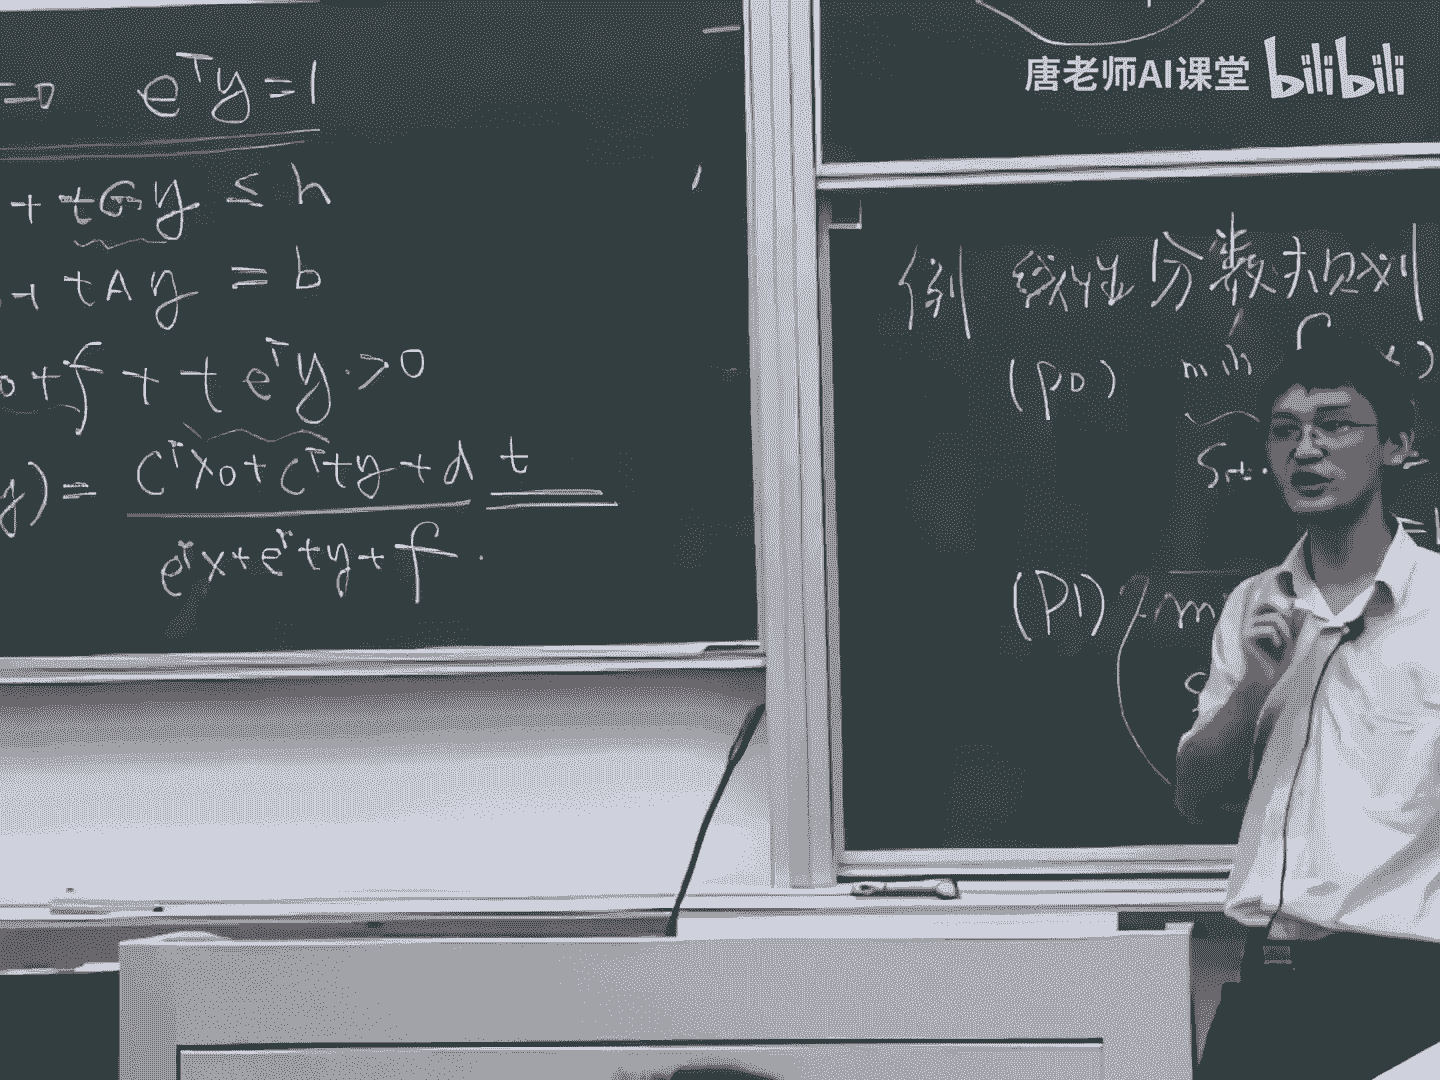 =0 e^T y = 1
+ tGy ≤ h
+ tAy = b
0 + f + t e^T y > 0
y) = (C^T x0 + C^T ty + d) / (e^T x + e^T ty + f) t
唐老师AI课堂 bilibili
例 线性分数规划
(P0) min f
s.t.
(P1) m